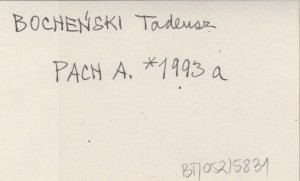 BOCHEŃSKI Tadeusz
PACH A. *1993 a
BT/052/5831